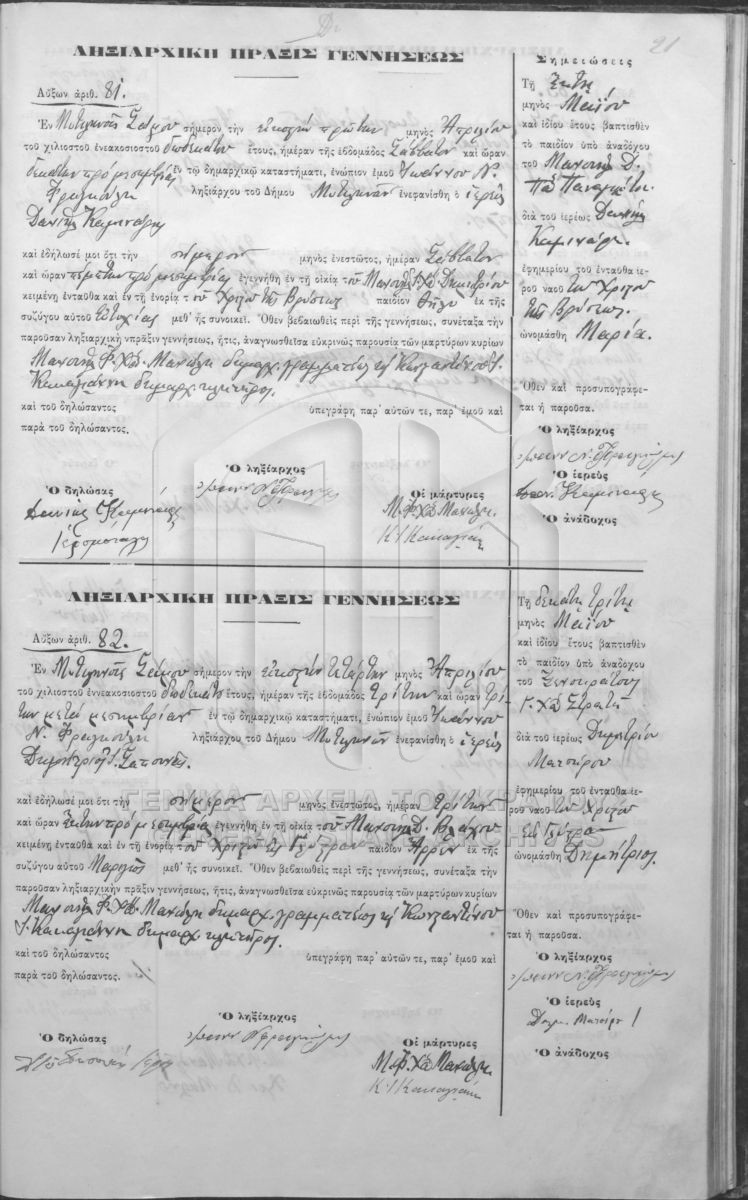 21
ΛΗΞΙΑΡΧΙΚΗ ΠΡΑΞΙΣ ΓΕΝΝΗΣΕΩΣ
Αὔξων ἀριθ. 81.
Ἐν Μυτιληνιοῖς Σάμου σήμερον τὴν εἰκοστὴν πρώτην μηνὸς Ἀπριλίου
τοῦ χιλιοστοῦ ἐνεακοσιοστοῦ δωδεκάτου ἔτους, ἡμέραν τῆς ἑβδομάδος Σάββατον καὶ ὥραν
δεκάτην πρὸ μεσημβρίας ἐν τῷ δημαρχικῷ καταστήματι, ἐνώπιον ἐμοῦ Ἰωάννου Ν.
Φραγκούλη ληξιάρχου τοῦ Δήμου Μυτιληνιῶν ἐνεφανίσθη ὁ ἱερεὺς
Δανιὴλ Καμινάρης
καὶ ἐδήλωσέ μοι ὅτι τὴν σήμερον μηνὸς ἐνεστῶτος, ἡμέραν Σάββατον
καὶ ὥραν πέμπτην πρὸ μεσημβρίας ἐγεννήθη ἐν τῇ οἰκίᾳ τοῦ Μανουὴλ Χʺ Δημητρίου
κειμένῃ ἐνταῦθα καὶ ἐν τῇ ἐνορίᾳ τοῦ Χριστοῦ τῆς Βρύσεως παιδίον θῆλυ ἐκ τῆς
συζύγου αὐτοῦ Εὐτυχίας μεθ' ἧς συνοικεῖ. Ὅθεν βεβαιωθεὶς περὶ τῆς γεννήσεως, συνέταξα τὴν
παροῦσαν ληξιαρχικὴν πρᾶξιν γεννήσεως, ἥτις, ἀναγνωσθεῖσα εὐκρινῶς παρουσίᾳ τῶν μαρτύρων κυρίων
Μανουὴλ Φ. Χʺ Μανώλη δημαρχ. γραμματέως καὶ Κωνσταντίνου Ι.
Κακαγιάννη δημαρχ. κλητῆρος.
καὶ τοῦ δηλώσαντος ὑπεγράφη παρ' αὐτῶν τε, παρ' ἐμοῦ καὶ
παρὰ τοῦ δηλώσαντος.
Ὁ ληξίαρχος
Ἰωάνν. Ν. Φραγκούλης
Ὁ δηλώσας
Δανιὴλ Καμινάρης
Ἱερομόναχος
Οἱ μάρτυρες
Μ. Φ. Χʺ Μανώλης
Κ Ι Κακαγιάννης
Σημειώσεις
Τῇ ἕκτῃ
μηνὸς Μαΐου
καὶ ἰδίου ἔτους βαπτισθὲν
τὸ παιδίον ὑπὸ ἀναδόχου
τοῦ Μανουὴλ Δ.
διὰ τοῦ ἱερέως Δανιὴλ
Καμινάρη.
ἐφημερίου τοῦ ἐνταῦθα ἱε-
ροῦ ναοῦ τοῦ Χριστοῦ
τῆς Βρύσεως.
ὠνομάσθη Μαρία.
Ὅθεν καὶ προσυπογράφε-
ται ἡ παροῦσα.
Ὁ ληξίαρχος
Ἰωάνν. Ν. Φραγκούλης
Ὁ ἱερεὺς
Δαν. Καμινάρης
Ὁ ἀνάδοχος
ΛΗΞΙΑΡΧΙΚΗ ΠΡΑΞΙΣ ΓΕΝΝΗΣΕΩΣ
Αὔξων ἀριθ. 82.
Ἐν Μυτιληνιοῖς Σάμου σήμερον τὴν εἰκοστὴν τετάρτην μηνὸς Ἀπριλίου
τοῦ χιλιοστοῦ ἐννεακοσιοστοῦ δωδεκάτου ἔτους, ἡμέραν τῆς ἑβδομάδος τρίτην καὶ ὥραν τρί-
την μετὰ μεσημβρίαν ἐν τῷ δημαρχικῷ καταστήματι, ἐνώπιον ἐμοῦ Ἰωάννου
Ν. Φραγκούλη ληξιάρχου τοῦ Δήμου Μυτιληνιῶν ἐνεφανίσθη ὁ ἱερεὺς
Δημήτριος
καὶ ἐδήλωσέ μοι ὅτι τὴν σήμερον μηνὸς ἐνεστῶτος, ἡμέραν τρίτην
καὶ ὥραν ἕκτην πρὸ μεσημβρίας ἐγεννήθη ἐν τῇ οἰκίᾳ τοῦ Μανουὴλ Δ. Βλάχου
κειμένῃ ἐνταῦθα καὶ ἐν τῇ ἐνορίᾳ τοῦ Χριστοῦ παιδίον ἄρρεν ἐκ τῆς
συζύγου αὐτοῦ Μαρίας μεθ' ἧς συνοικεῖ. Ὅθεν βεβαιωθεὶς περὶ τῆς γεννήσεως, συνέταξα τὴν
παροῦσαν ληξιαρχικὴν πρᾶξιν γεννήσεως, ἥτις, ἀναγνωσθεῖσα εὐκρινῶς παρουσίᾳ τῶν μαρτύρων κυρίων
Μανουὴλ Φ. Χʺ Μανώλη δημαρχ. γραμματέως καὶ Κωνσταντίνου
Ι. Κακαγιάννη δημαρχ. κλητῆρος.
καὶ τοῦ δηλώσαντος ὑπεγράφη παρ' αὐτῶν τε, παρ' ἐμοῦ καὶ
παρὰ τοῦ δηλώσαντος.
Ὁ ληξίαρχος
Ἰωάνν. Ν. Φραγκούλης
Ὁ δηλώσας
Οἱ μάρτυρες
Μ. Φ. Χʺ Μανώλης
Κ Ι Κακαγιάννης
Τῇ δεκάτῃ τρίτῃ
μηνὸς Μαΐου
καὶ ἰδίου ἔτους βαπτισθὲν
τὸ παιδίον ὑπὸ ἀναδόχου
τοῦ
Γ. Χʺ Στρατῆ
διὰ τοῦ ἱερέως Δημητρίου
ἐφημερίου τοῦ ἐνταῦθα ἱε-
ροῦ ναοῦ τοῦ Χριστοῦ
ὠνομάσθη Δημήτριος.
Ὅθεν καὶ προσυπογράφε-
ται ἡ παροῦσα.
Ὁ ληξίαρχος
Ἰωάνν. Ν. Φραγκούλης
Ὁ ἱερεὺς
Ὁ ἀνάδοχος
ΓΕΝΙΚΑ ΑΡΧΕΙΑ ΤΟΥ ΚΡΑΤΟΥΣ